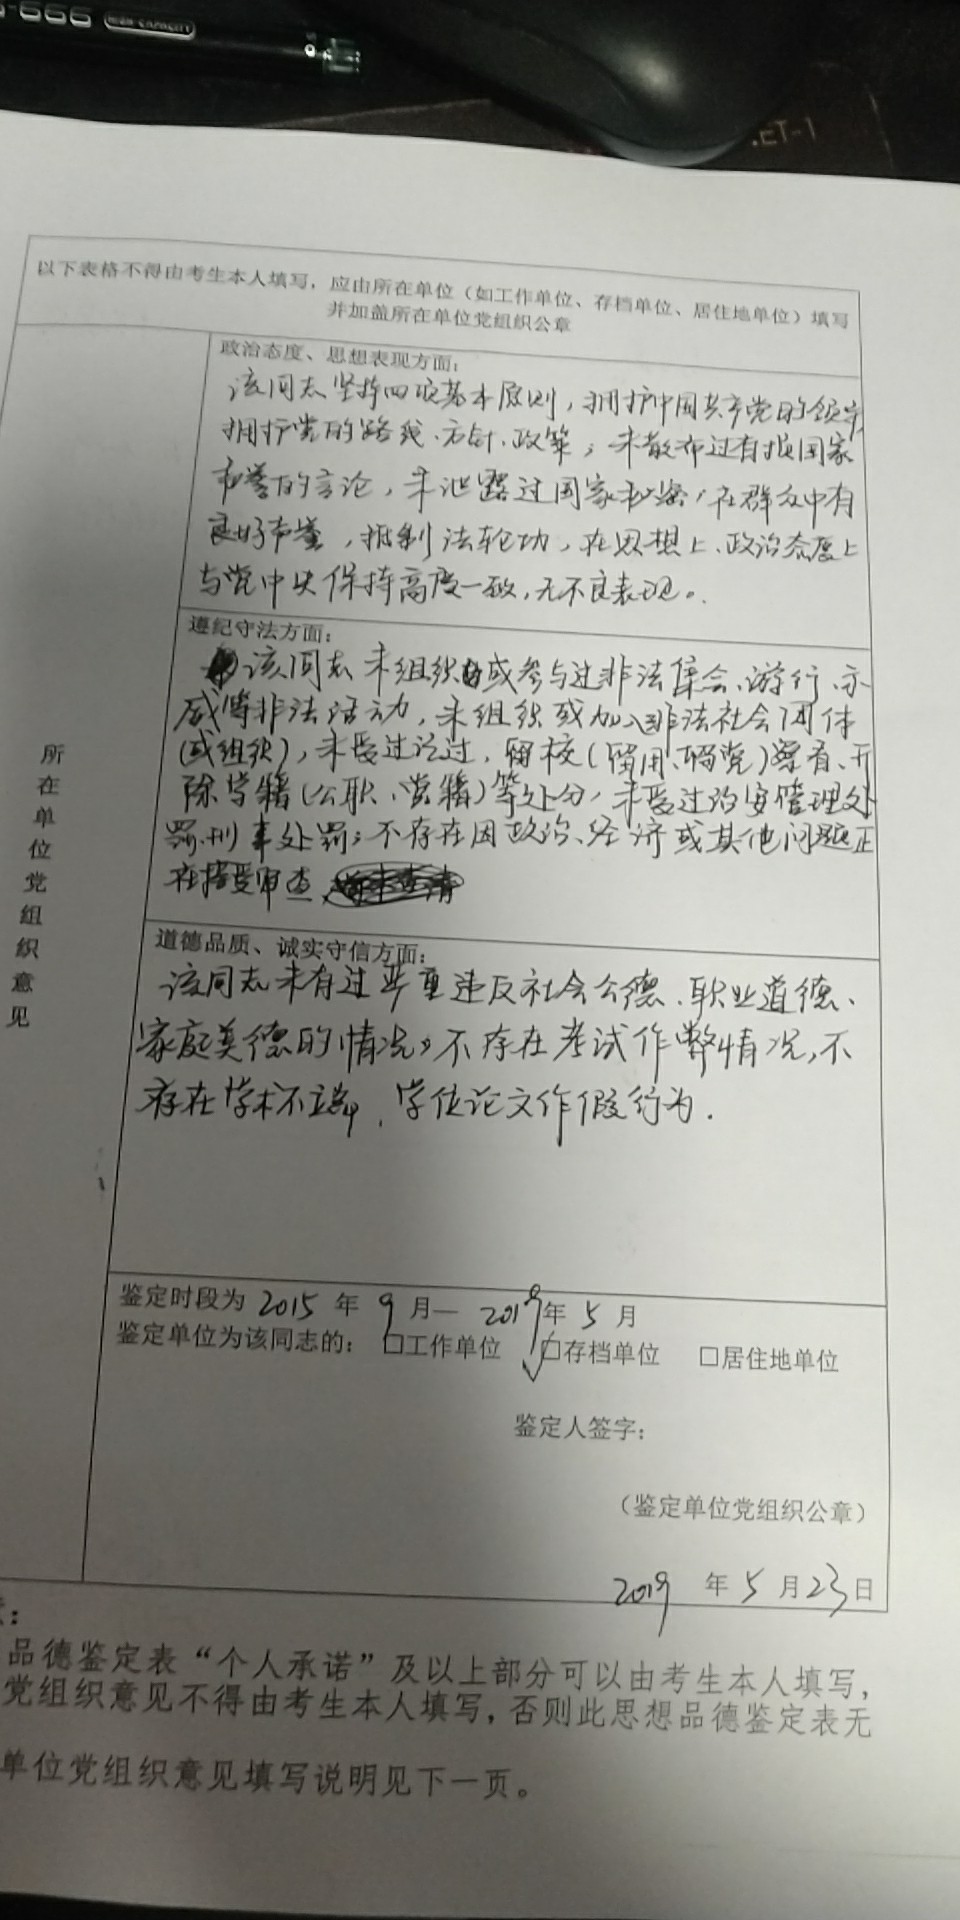 -666 HIGH CAPACITY
.ET-1
以下表格不得由考生本人填写，应由所在单位（如工作单位、存档单位、居住地单位）填写
并加盖所在单位党组织公章
所在单位党组织意见
政治态度、思想表现方面：
该同志坚持四项基本原则，拥护中国共产党的领导，
拥护党的路线、方针、政策；未散布过有损国家
声誉的言论，未泄露过国家秘密，在群众中有
良好声誉，抵制法轮功，在思想上、政治态度上
与党中央保持高度一致，无不良表现。
遵纪守法方面：
该同志未组织或参与过非法集会、游行、示
威等非法活动，未组织或加入非法社会团体
（或组织），未受过记过，留校（留用、留党）察看、开
除学籍（公职、党籍）等处分，未受过治安管理处
罚、刑事处罚；不存在因政治、经济或其他问题正
在接受审查
道德品质、诚实守信方面：
该同志未有过严重违反社会公德、职业道德、
家庭美德的情况，不存在考试作弊情况，不
存在学术不端、学位论文作假行为.
鉴定时段为 2015 年 9 月— 2019 年 5 月
鉴定单位为该同志的：□工作单位 ☑存档单位 □居住地单位
鉴定人签字：
（鉴定单位党组织公章）
2019 年 5 月 23 日
品德鉴定表“个人承诺”及以上部分可以由考生本人填写，
党组织意见不得由考生本人填写，否则此思想品德鉴定表无
单位党组织意见填写说明见下一页。